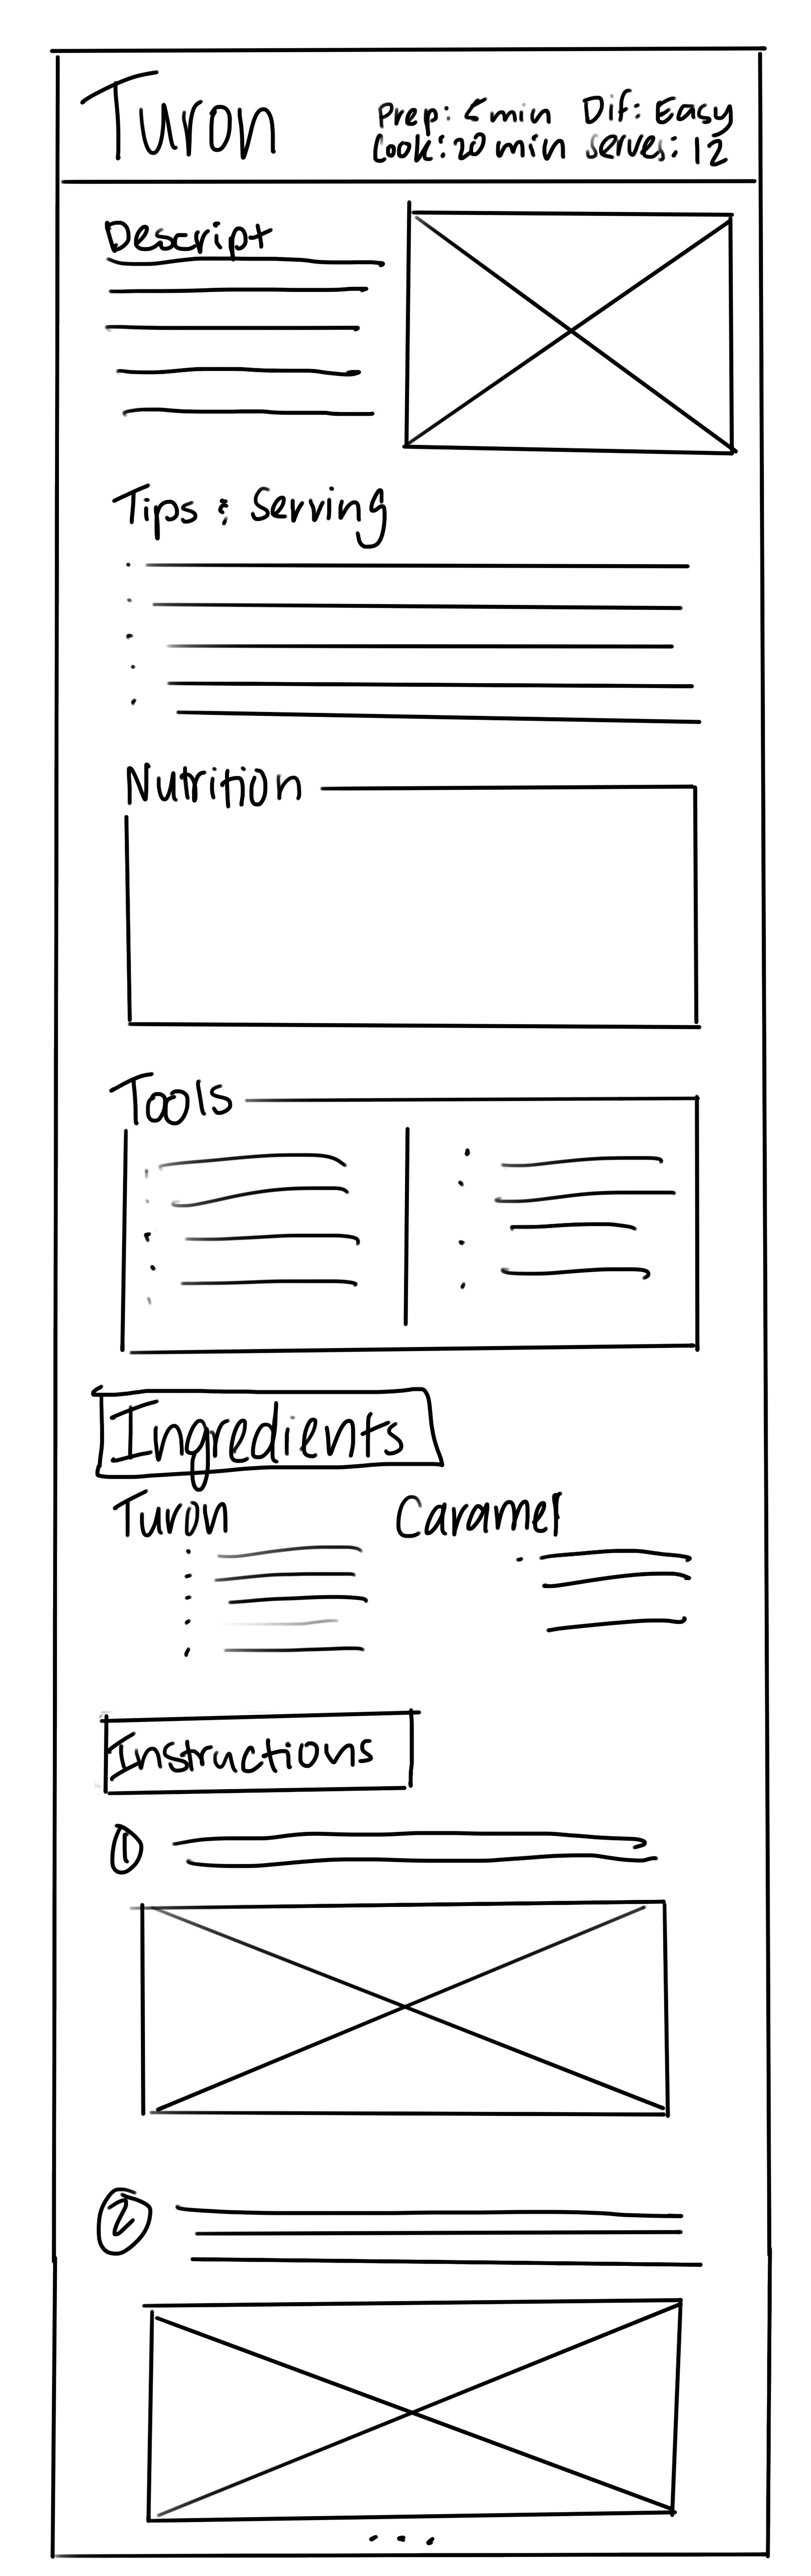 Turon
Prep: 5 min Dif: Easy
Cook: 20 min serves: 12
Descript
Tips & Serving
Nutrition
Tools
Ingredients
Turon
Caramel
Instructions
1
2
...